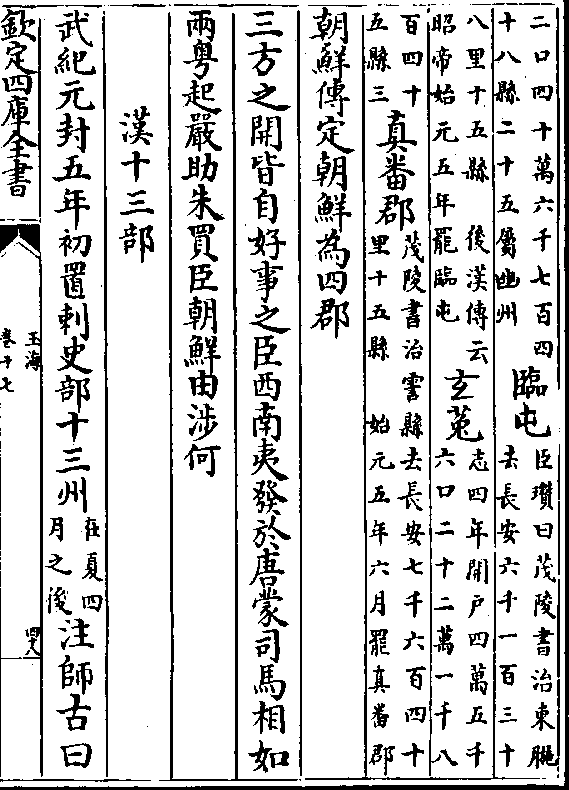 二口四十萬六千七百四十八縣二十五屬幽州臨屯臣瓚曰茂陵書治東暆去長安六千一百三十
八里十五縣　後漢傳云昭帝始元五年罷臨屯玄菟志四年開戶四萬五千六口二十二萬一千八
百四十五縣三真番郡茂陵書治霅縣去長安七千六百四十里十五縣　始元五年六月罷真番郡
朝鮮傳定朝鮮為四郡
三方之開皆自好事之臣西南夷發於唐蒙司馬相如
兩粵起嚴助朱買臣朝鮮由涉何
漢十三部
武紀元封五年初置刺史部十三州在夏四月之後注師古曰
欽定四庫全書
玉海
卷十七